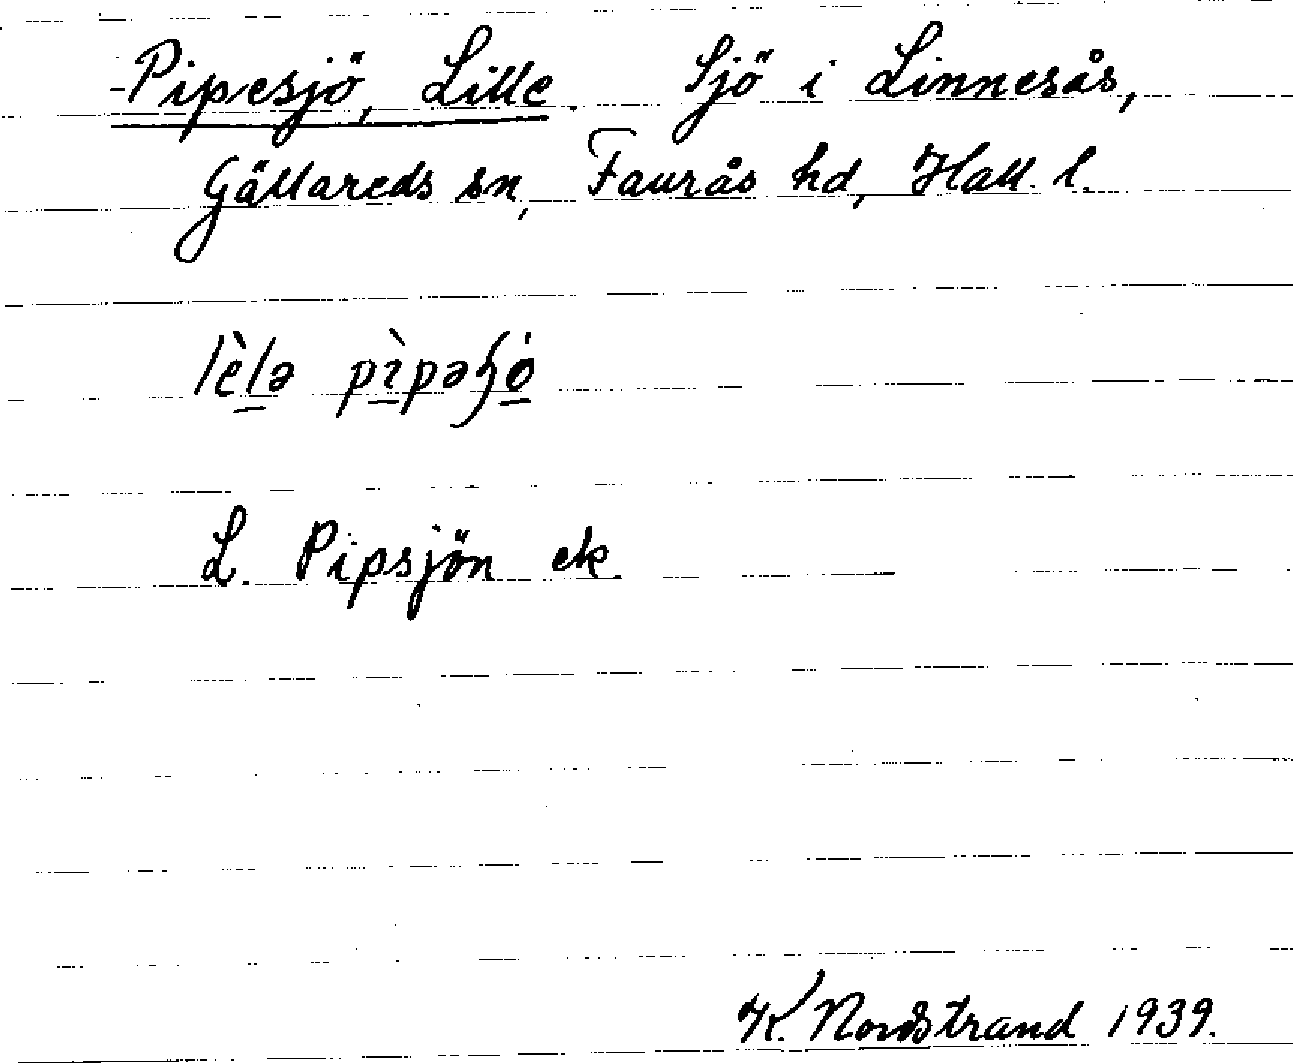 Pipesjö, Lille. Sjö i Linnesås,
Gällareds sn, Faurås hd, Hall. l.
lèlə pìpəɧó
L. Pipsjön ek.
K. Nordstrand 1939.